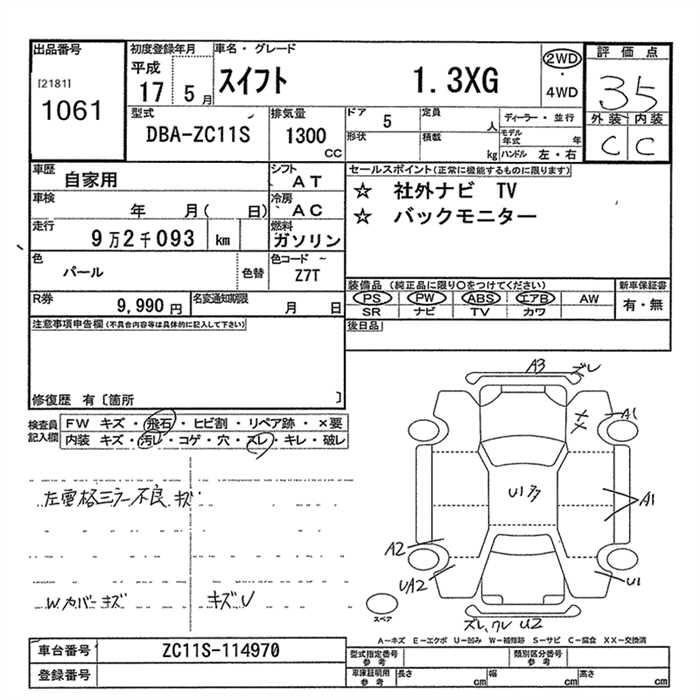 出品番号
[2181]
1061
初度登録年月
平成
17 5 月
車名・グレード
スイフト 1.3XG
2WD
・
4WD
評価点
35
外装 内装
C C
型式
DBA-ZC11S
排気量
1300
CC
ドア
5
定員
人
形状
積載
kg
ディーラー・並行
モデル年式 年
ハンドル 左・右
車歴
自家用
シフト
AT
車検
年 月( 日)
冷房
AC
走行
9万2千093 km
燃料
ガソリン
色
パール
色替
色コード ~
Z7T
R券
9,990 円
名変通知期限
月 日
セールスポイント(正常に機能するものに限ります)
☆ 社外ナビ TV
☆ バックモニター
装備品 (純正品に限り○をつけてください)
PS PW ABS エアB AW
SR ナビ TV カワ
新車保証書
有・無
後日品
注意事項申告欄(不具合内容等は具体的に記入して下さい)
修復歴 有〔箇所 〕
検査員
記入欄
FW キズ・飛石・ヒビ割・リペア跡・×要
内装 キズ・汚レ・コゲ・穴・スレ・キレ・破レ
左電格ミラー不良 キズ
W.カバーキズ
キズU
A3 ズレ
A1
U1多
A1
A2
UA2
U1
ズレ,ワレ U2
スペア
A-キズ E-エクボ U-凹み W-補修跡 S-サビ C-腐食 XX-交換済
車台番号
ZC11S-114970
登録番号
型式指定番号
参考
類別区分番号
参考
車庫証明用
参考
長さ cm
幅 cm
高さ cm